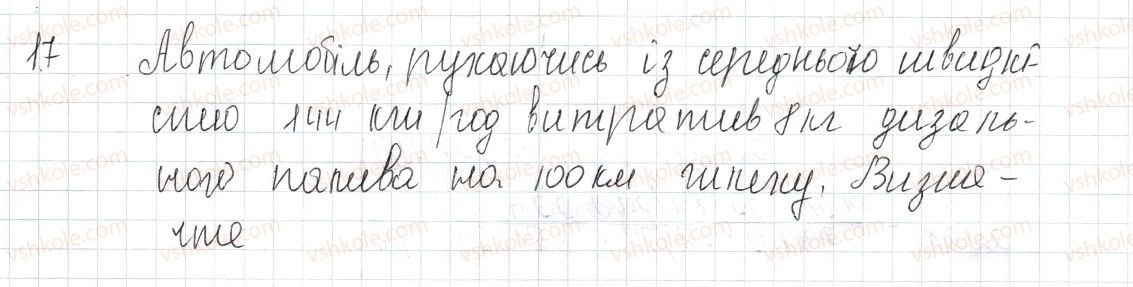 17 Автомобіль, рухаючись із середньою швидкі-
стю 144 км/год витратив 8кг дизаль-
ного палива на 100км шляху. Визна-
чте